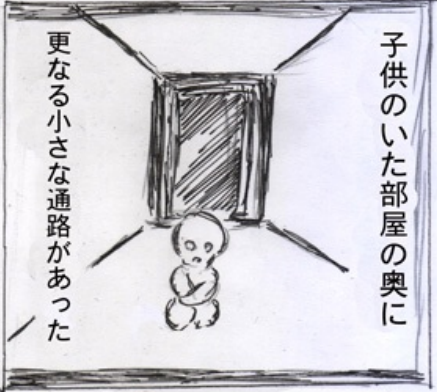 子供のいた部屋の奥に
更なる小さな通路があった